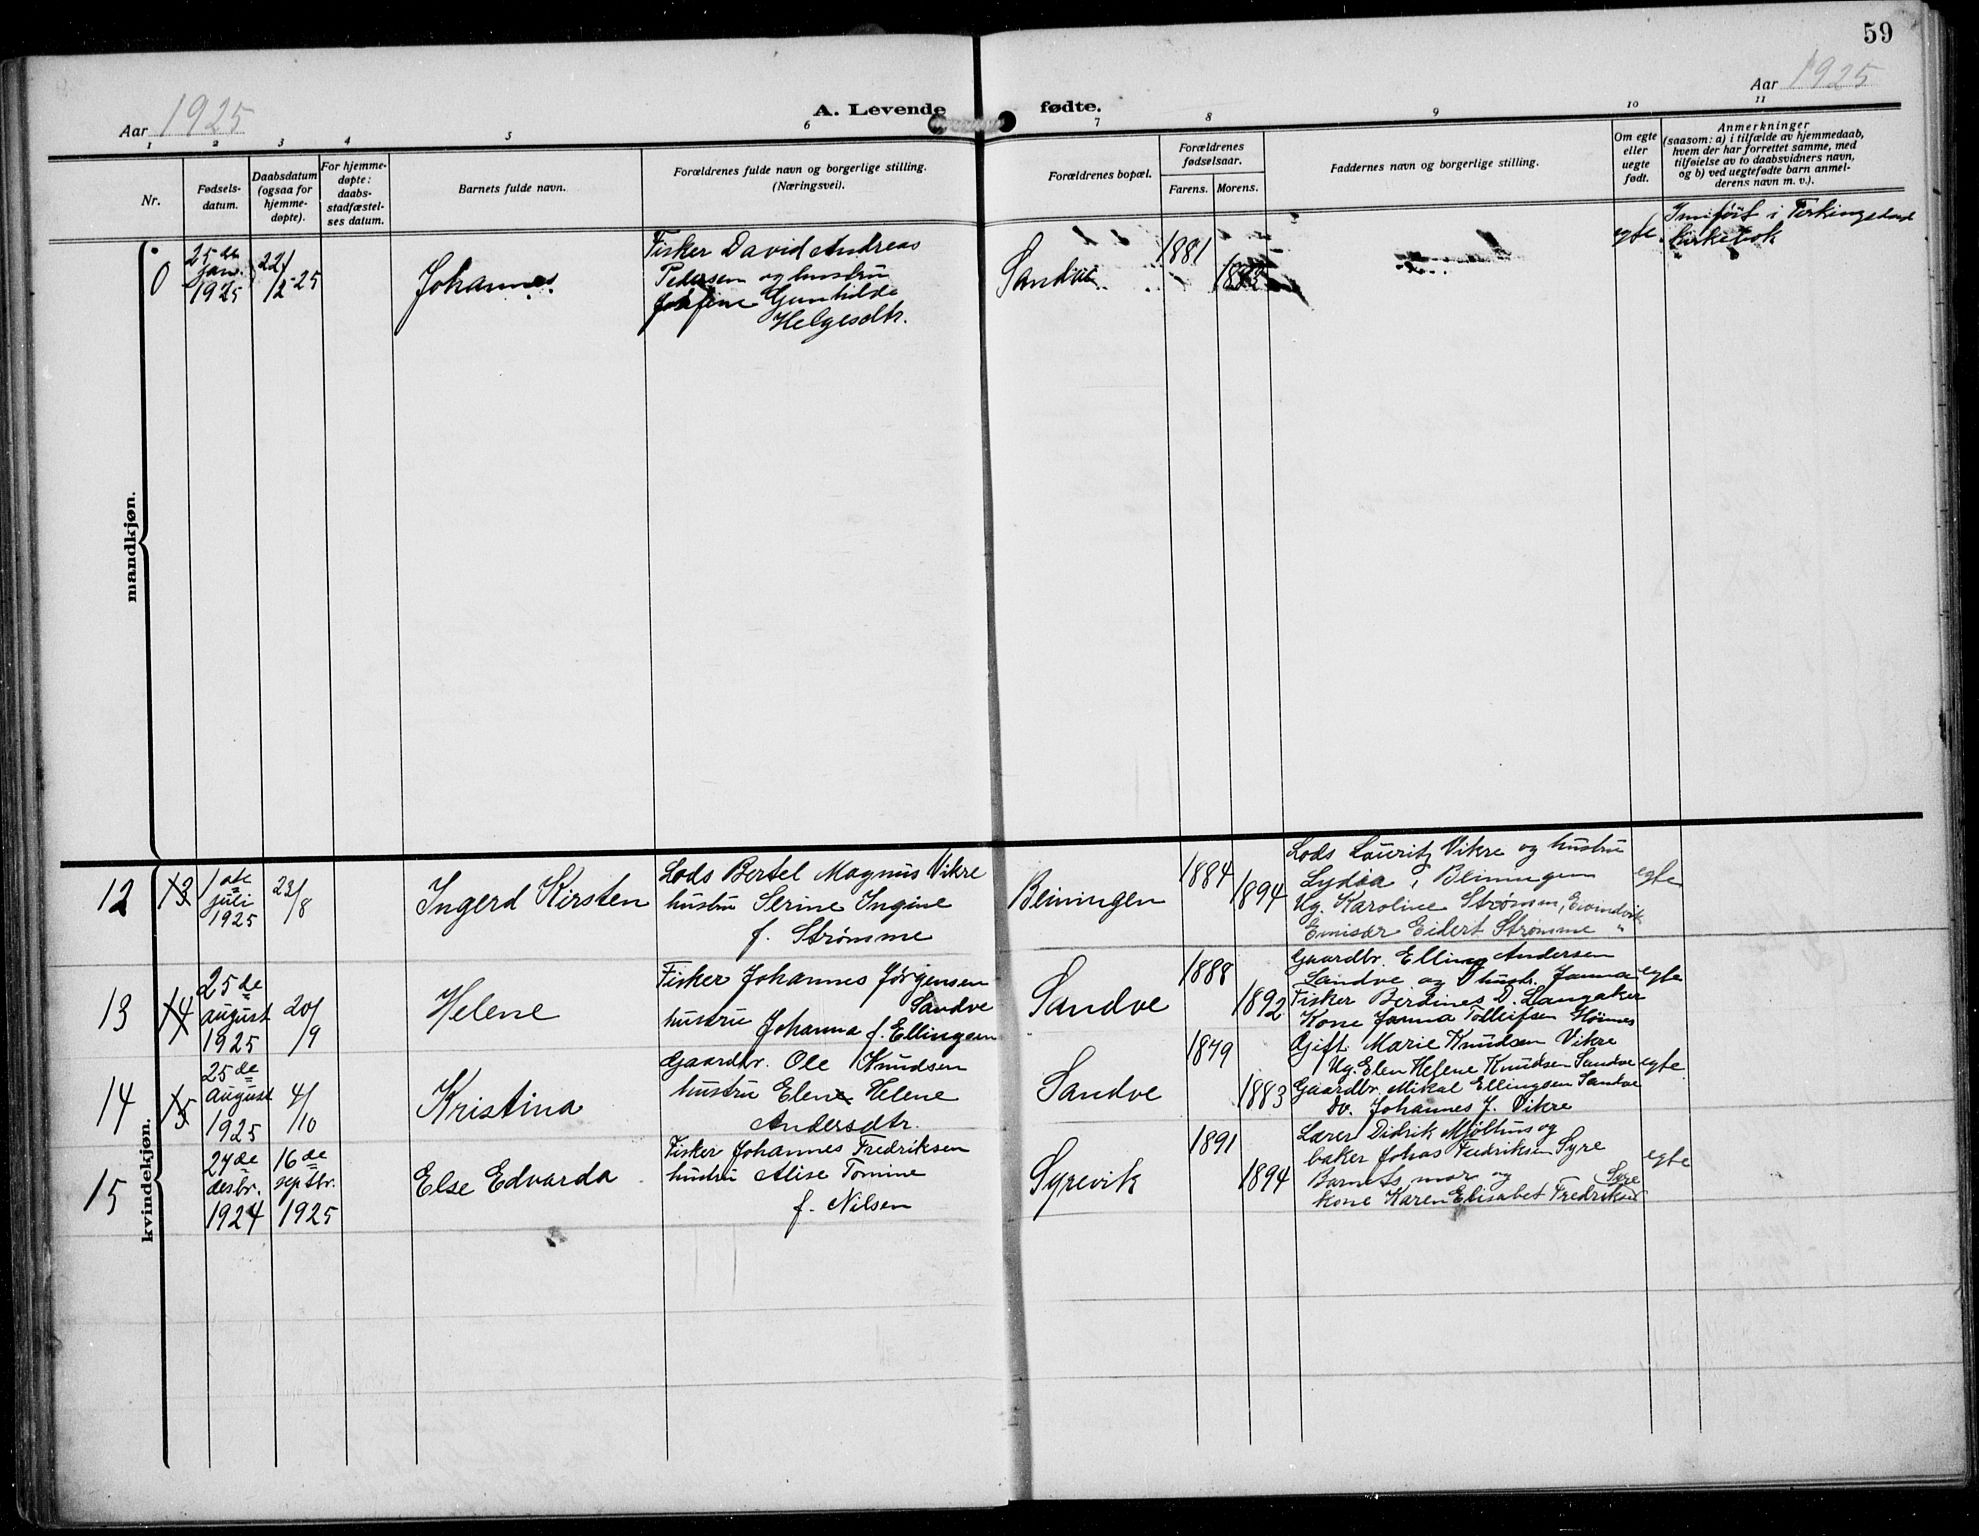 59
Aar 1925
A. Levende fødte.
Aar 1925
1 2 3 4 5 6 7 8 9 10 11
Nr.
Fødsels-
datum.
Daabsdatum
(ogsaa for
hjemme-
døpte).
For hjemme-
døpte:
daabs-
stadfæstel-
ses datum.
Barnets fulde navn.
Forældrenes fulde navn og borgerlige stilling.
(Næringsvei).
Forældrenes bopæl.
Forældrenes
fødselsaar.
Farens. Morens.
Faddernes navn og borgerlige stilling.
Om egte
eller
uegte
født.
Anmerkninger
(saasom: a) i tilfælde av hjemmedaab,
hvem der har forrettet samme, med
tilføielse av to daabsvidners navn,
og b) ved uegtefødte barn anmel-
derens navn m. v.).
mandkjøn.
0
25 de
jan.
1925
22/
12-25
Johannes
Fisker David Andreas
Pedersen og hustru
Josefine Gunhilde
Helgesdtr.
Sandve
1881
egte
Innført i
kirkebok
kvindekjøn.
12
13
1 ste
juli
1925
23/
/8
Ingerd Kirsten
Lods Bertel Magnus Vikre
hustru Serine Ingine
f. Strømme
Blinningen
1884
1894
Lods Lauritz Vikre og hustru
Lydia, Blinningen
Ug. Karoline Strømm, Eivindvik
Emisær Eidert Strømme "
egte
13
14
25 de
august
1925
20/
/9
Helene
Fisker Johannes Jørgensen
Sandve
hustru Johanna f. Ellingsen
Sandve
1888
1892
Gaardbr. Elling Andersen
Sandve og hustr. Janna
Fisker Berdines D. Langaker
Kone Janna Tollefsen
egte
14
15
25 de
august
1925
4/
/10
Kristina
Gaardbr. Ole Knudsen
hustru Elene Helene
Andersdtr.
Sandve
1879
1883
Gift Marie Knudsen Vikre
Ug. Elen Helene Knudsen Sandve
Gaardbr. Mikal Ellingsen Sandve
Do. Johannes J. Vikre
egte
15
24 de
desbr.
1924
16 de
septbr.
1925
Else Edvarda
Fisker Johannes Fredriksen
hustru Alise Tomine
f. Nilsen
Syrevik
1891
1894
Lærer Didrik Mjølhus og
baker Johas Fredriksen Syre
Barnets mor og Syre
kone Karen Elisabet Fredriksen
egte